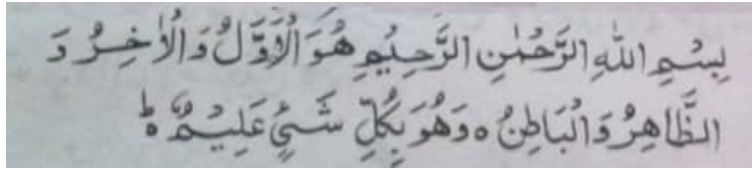 بِسْمِ اللهِ الرَّحْمٰنِ الرَّحِيْمِ هُوَ الْاَوَّلُ وَالْاٰخِرُ وَ
الظَّاهِرُ وَالْبَاطِنُ ہ وَهُوَ بِكُلِّ شَيْءٍ عَلِيْمٌ ط